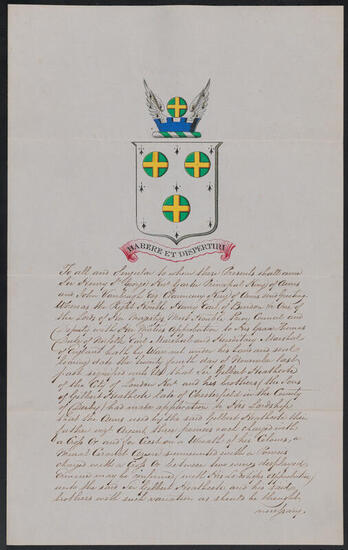 HABERE ET DISPERTIRI
To all and Singular to whom these Presents shall come
Sir Henry St George Knt Garter Principal King of Arms
and John Vanbrugh Esq Clarenceux King of Arms send Greeting
Whereas the Right Honble Henry Earl of Bindon one of
the Lords of Her Majestys Most Honble Privy Council and
Deputy with Her Royal Approbation to His Grace Thomas
Duke of Norfolk Earl Marshal and Hereditary Marshal
of England hath by Warrant under his hand and seal
bearing date the twenty fourth day of November last
past signified unto Us that Sir Gilbert Heathcote
of the City of London Knt and his brothers (the Sons
of Gilbert Heathcote late of Chesterfield in the County
of Derby) had made application to His Lordship
that the Arms used by the said Gilbert Heathcote their
father viz Ermine three pomeis each charged with
a Cross Or and for Crest on a Wreath of the Colours, a
Mural Coronet Azure surmounted with a Pomeis
charged with a Cross Or between two wings displayed
Ermine may be confirmed with His Lordships approbation
unto the said Sir Gilbert Heathcote and his said
brothers with such variation as should be thought
necessary.